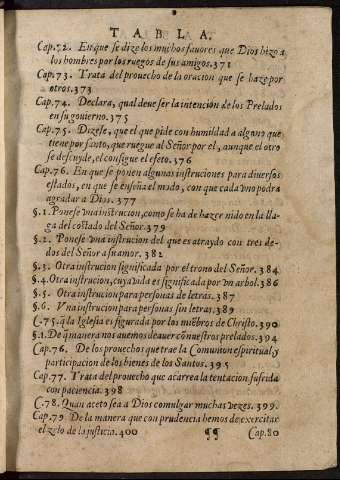 TABLA.
Cap.72. En que se dize los muchos fauores que Dios hizo a
los hombres por los ruegos de sus amigos. 371
Cap. 73. Trata del prouecho de la oracion que se haze por
otros. 373
Cap. 74. Declara, qual deue ser la intención de los Prelados
en su gouierno. 375
Cap. 75. Dizese, que el que pide con humildad a alguno que
tiene por santo, que ruegue al Señor por el, aunque el otro
se descuyde, el consigue el efeto. 376
Cap. 76. En que se ponen algunas instruciones para diuersos
estados, en que se enseña el modo, con que cada vno podra
agradar a Dios. 377
§. 1. Ponese vna instrucion, como se ha de hazer nido en la lla-
ga del costado del Señor. 379
§. 2. Ponese vna instrucion del que es atraydo con tres de-
dos del Señor a su amor. 382
§. 3. Otra instrucion significada por el trono del Señor. 384
§. 4. Otra instrucion, cuya vida es significada por vn arbol. 386
§. 5. Otra instrucion para personas de letras. 387
§. 6. Vna instrucion para personas sin letras. 389
C. 75. q̃ la Iglesia es figurada por los miẽbros de Christo. 390
§. 1. De q̃ manera nos auemos de auer cõ nuestros prelados. 394
Cap. 76. De los prouechos que trae la Comunion espiritual, y
participacion de los bienes de los Santos. 395
Cap. 77. Trata del prouecho que acarrea la tentacion sufrida
con paciencia. 398
C. 78. Quan aceto sea a Dios comulgar muchas vezes. 399.
Cap. 79 De la manera que con prudencia hemos de exercitar
el zelo de la justicia. 400 ¶¶ Cap. 80